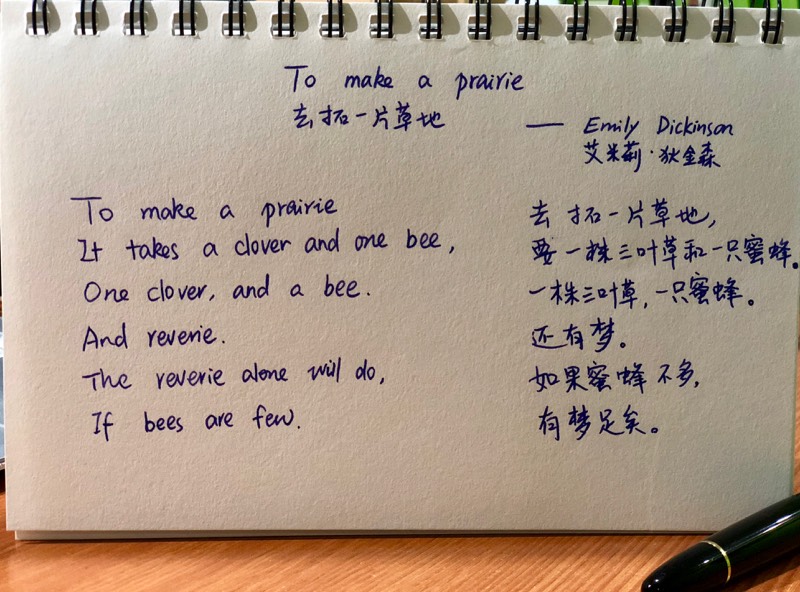 To make a prairie
去拓一片草地
— Emily Dickinson
艾米莉·狄金森
To make a prairie
It takes a clover and one bee,
One clover, and a bee.
And reverie.
The reverie alone will do,
If bees are few.
去拓一片草地,
要一株三叶草和一只蜜蜂。
一株三叶草,一只蜜蜂。
还有梦。
如果蜜蜂不多,
有梦足矣。